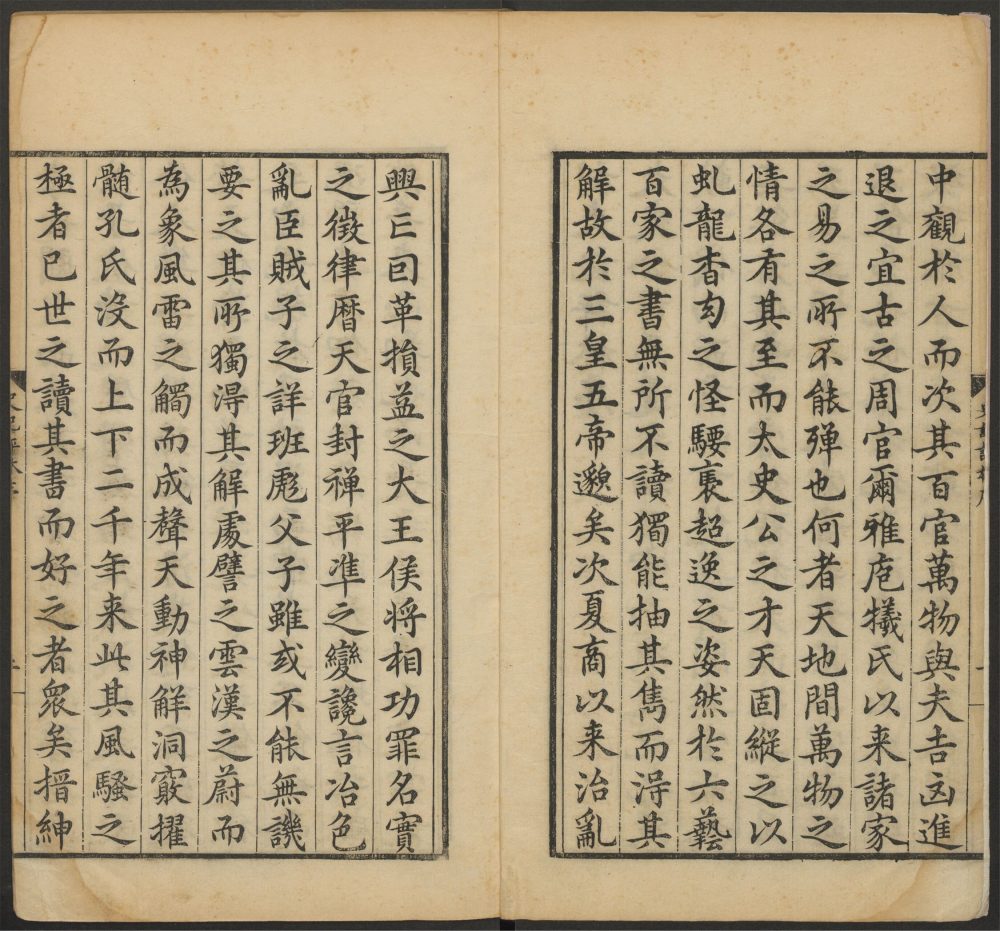 中觀於人而次其百官萬物與夫吉凶進
退之宜古之周官爾雅庖犧氏以来諸家
之易之所不能殫也何者天地間萬物之
情各有其至而太史公之才天固縱之以
虬龍杳幻之怪騕褭超逸之姿然於六藝
百家之書無所不讀獨能抽其雋而淂其
解故於三皇五帝邈矣次夏商以来治亂
興亡因革損益之大王侯将相功罪名實
之徴律曆天官封禅平準之變讒言冶色
亂臣賊子之詳班彪父子雖或不能無譏
要之其所獨淂其解處譬之雲漢之蔚而
為象風雷之觸而成聲天動神解洞竅擢
髄孔氏没而上下二千年来此其風騷之
極者已世之讀其書而好之者衆矣搢紳